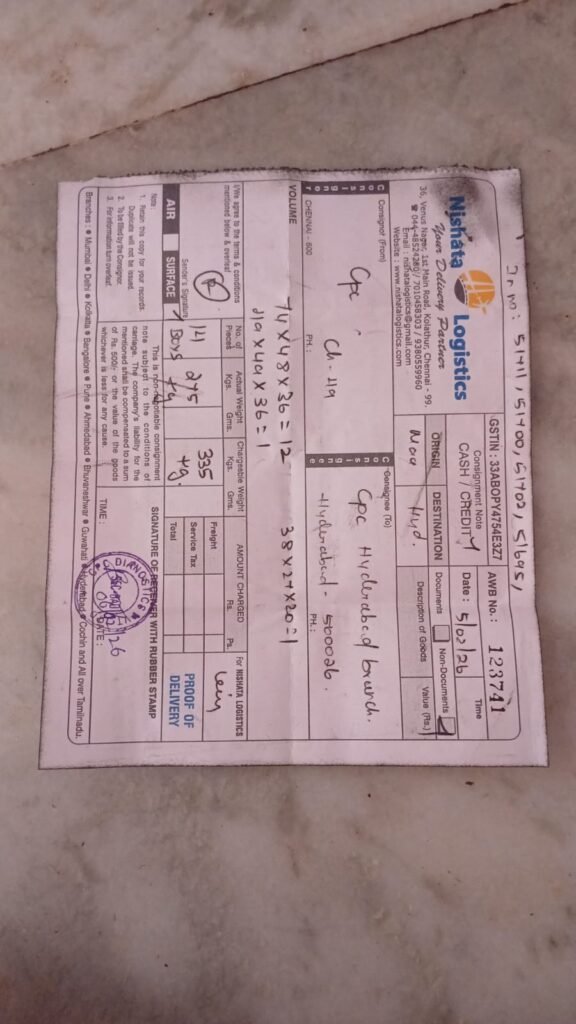 Nishata Logistics
Your Delivery Partner
36, Venus Nagar, 1st Main Road, Kolathur, Chennai - 99.
Email : nishatalogistics@gmail.com
Website : www.nishatalogistics.com
GSTIN : 33ABOPY4754E3Z7
Consignment Note
CASH / CREDIT
AWB No. : 123741
Date : 5/02/26
Time
ORIGIN
DESTINATION
Hyd.
Documents
Non-Documents
Description of Goods
Value (Rs.)
Consignor
Consignor (From)
Cpc - Ch-Hq
CHENNAI - 600
PH. :
Consignee
Consignee (To)
Cpc Hyderabad branch.
Hyderabad - 500026.
PH. :
VOLUME
74 x 48 x 36 = 12
49 x 49 x 36 = 1
38 x 27 x 20 = 1
I/We agree to the terms & conditions
mentioned below & overleaf
Sender's Signature
No. of Pieces
Actual Weight
Kgs. Gms.
Chargeable Weight
Kgs. Gms.
AMOUNT CHARGED
Rs. Ps.
For NISHATA LOGISTICS
14
275
kg
335
kg
Freight
Service Tax
Total
PROOF OF
DELIVERY
AIR
SURFACE
Note:
1. Retain this copy for your records
Duplicate will not be issued.
2. To be filled by the Consignor.
3. For information turn overleaf.
This is non-negotiable consignment
note subject to the conditions of
carriage. The company's liability for the
mentioned shall be compensated to a sum
of Rs. 5000/- or the value of the goods
whichever is less for any cause.
SIGNATURE OF RECEIVER WITH RUBBER STAMP
TIME :
DATE :
Branches : • Mumbai • Delhi • Kolkatta • Bangalore • Pune • Ahmedabad • Bhuvaneshwar • Guwahati • Hyderabad • Cochin and All over Tamilnadu.